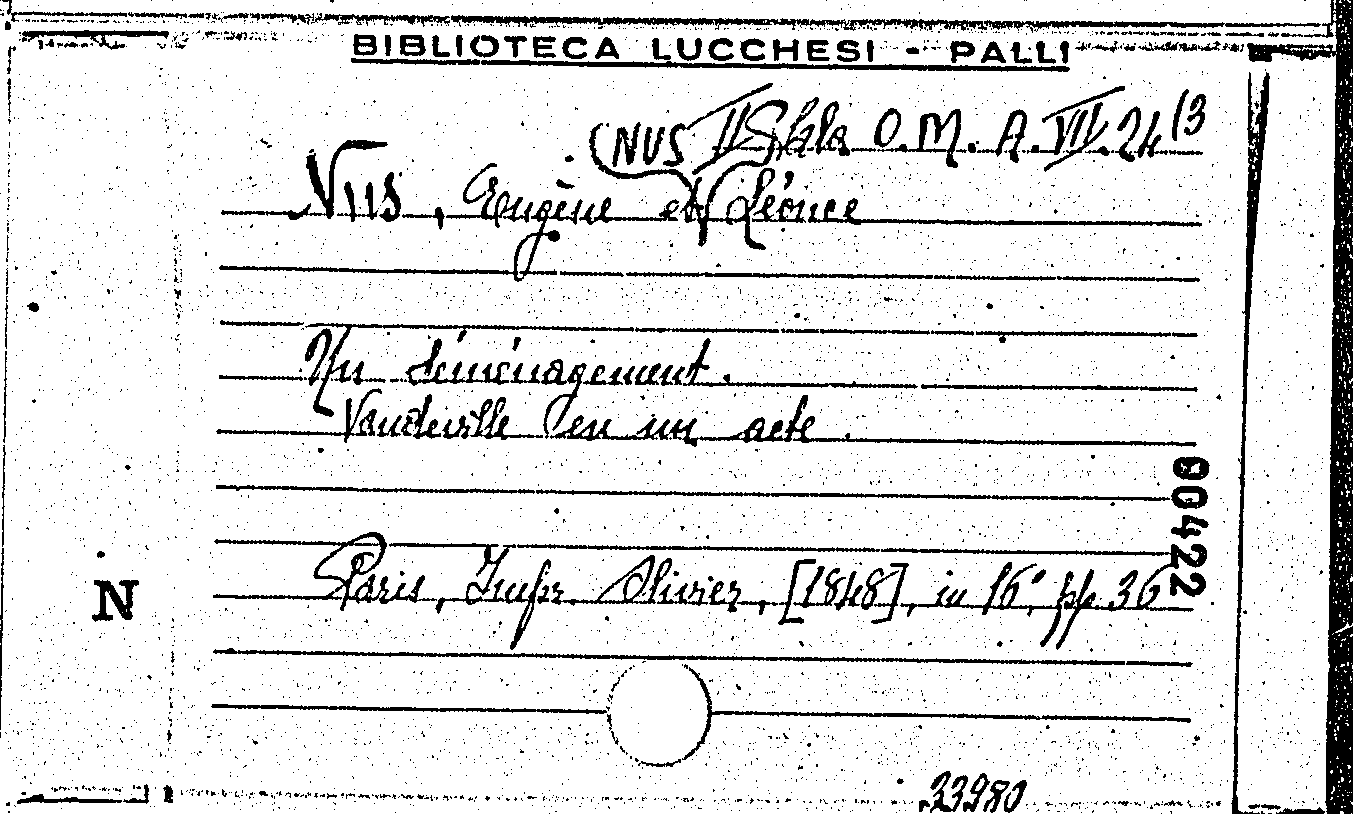 BIBLIOTECA LUCCHESI - PALLI
(NUS II Sala O. M. A. VII. 24/3
Nus, Eugène et Léonce
Un déménagement.
Vaudeville en un acte.
00422
N
Paris, Impr. Olivier, [1848], in 16°, pp. 36
33980